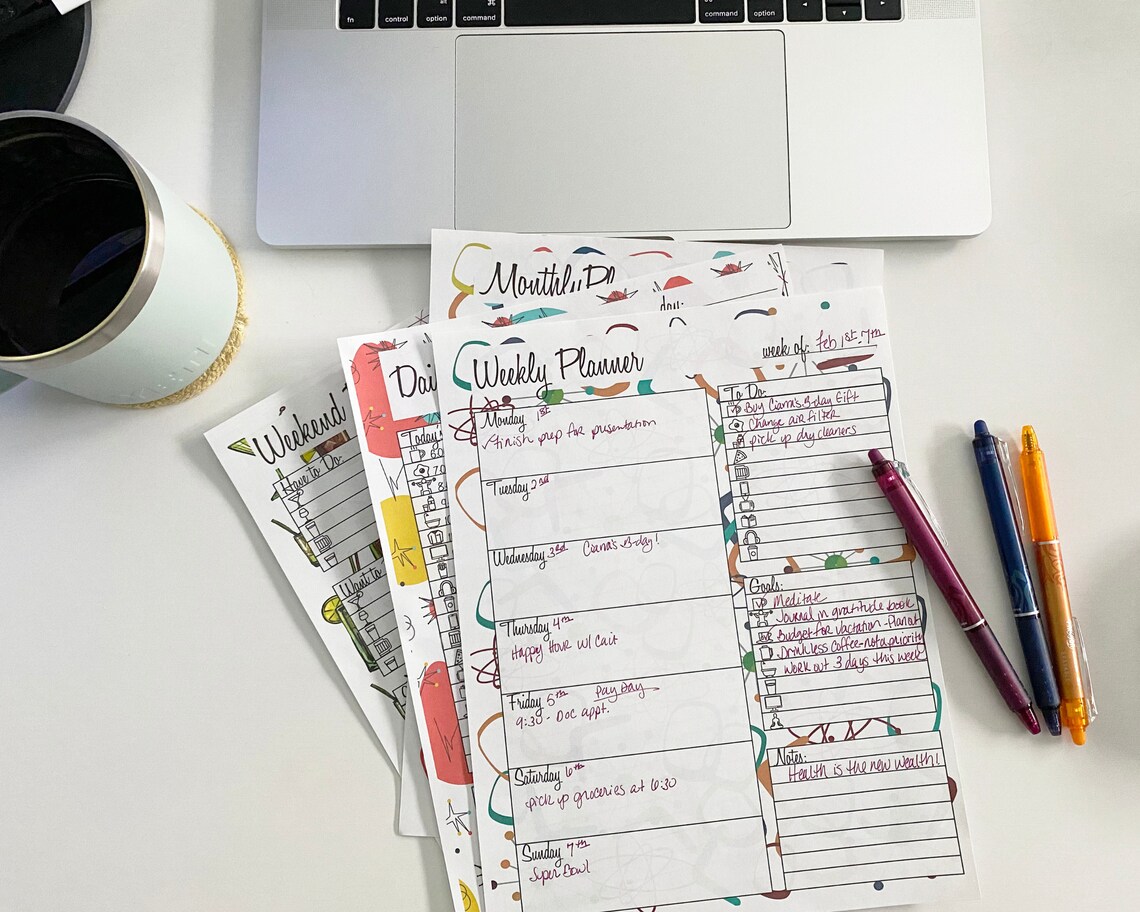 fn
control
option
command
command
option
Monthly
day:
Weekly Planner
week of: Feb 1st-7th
Monday 1st
finish prep for presentation
Tuesday 2nd
Wednesday 3rd Ciana's B-day!
Thursday 4th
Happy Hour w/ Cait
Friday 5th Pay Day
9:30 - Doc appt.
Saturday 6th
pick up groceries at 6:30
Sunday 7th
Super Bowl
To Do:
Buy Ciana's B-day Gift
Change air filter
pick up dry cleaners
Goals:
Meditate
Journal in gratitude book
Budget for vacation
Drink less coffee-not a priority
work out 3 days this week
Notes:
Health is the new wealth!
Dai
Today
Weekend
Have to Do:
Want to